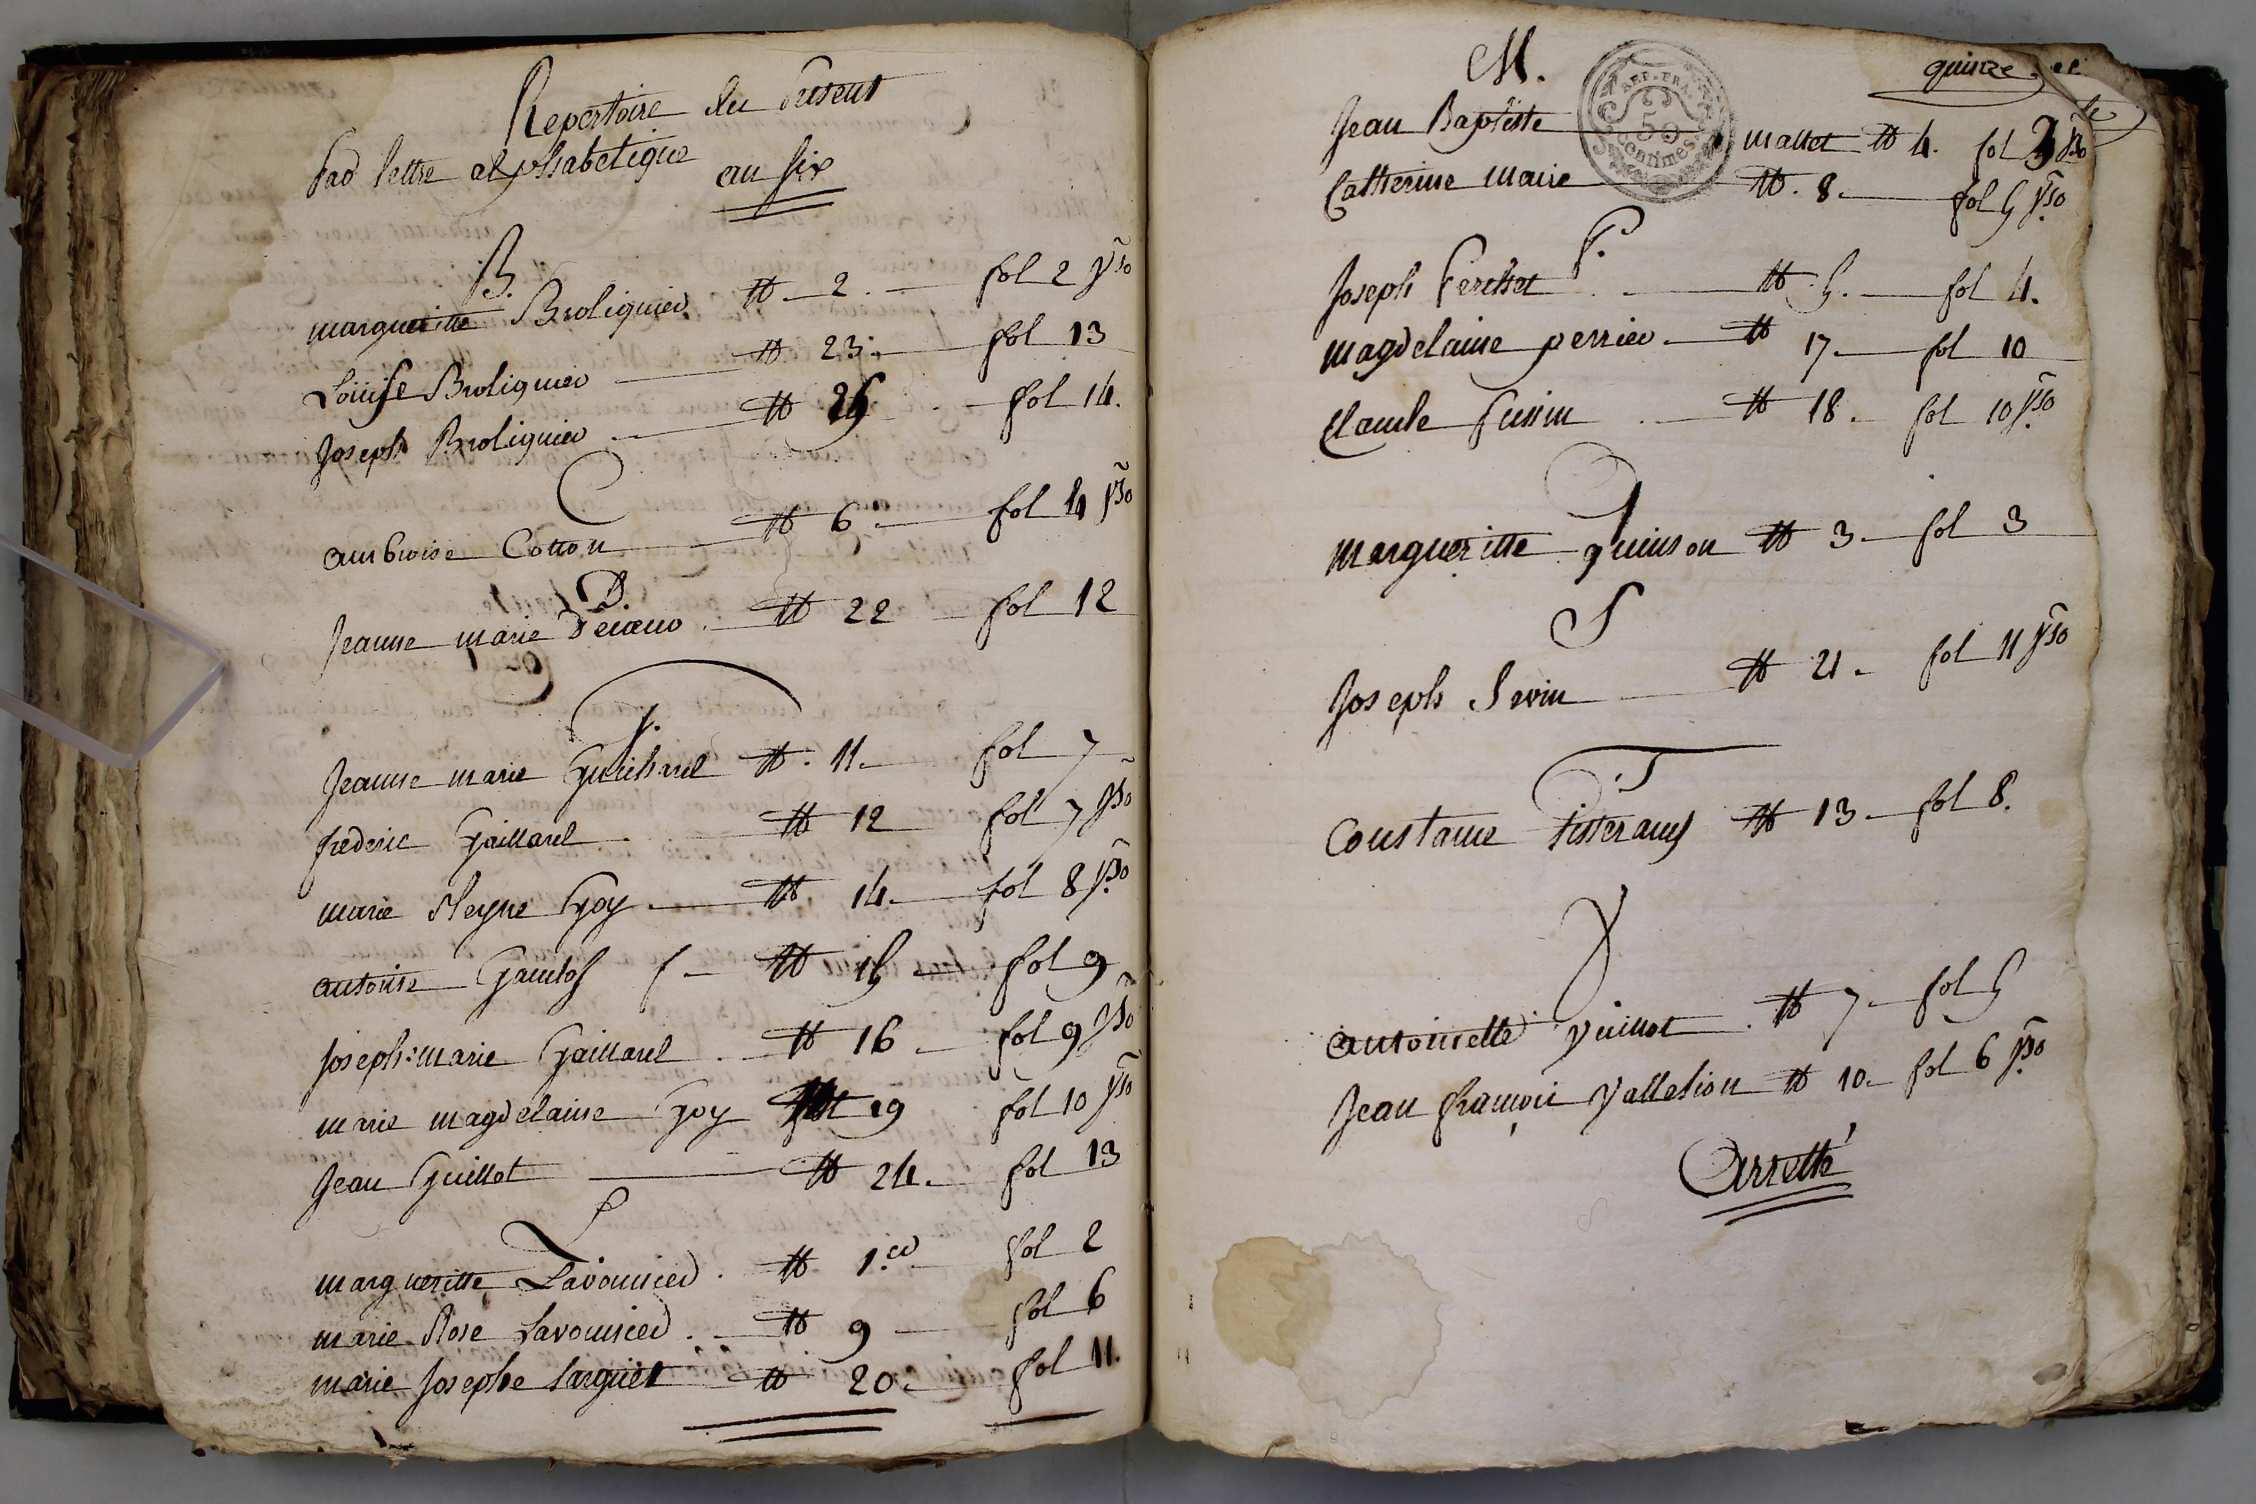 Repertoire du presens
par lettre alphabetique
an six
B.
margueritte Broliquier № 2. fol 2 vso
Loüise Broliquier № 23. fol 13
Joseph Broliquier № 25 fol 14.
C
ambroise Cotton № 6 fol 4 vso
D.
Jeanne marie № 22 fol 12
G.
Jeanne marie Guichard № 11. fol 7
frederic Gaillard № 12 fol 7 vso
marie Reyne Goy № 14. fol 8 vso
antoine № 15 fol 9
Joseph: marie Gaillard № 16 fol 9 vso
marie magdelaine Goy № 19 fol 10 vso
Jean Guillot № 24. fol 13
L
margueritte Lavouvier № 1.er fol 2
marie Rose Lavouvier № 9 fol 6
marie Josephe № 20. fol 11.
M.
quinze
REP. FRA.
50
Centimes
Jean Baptiste mallet № 4. fol 3 vso
Catherine maire № 8. fol 5 vso
P.
Joseph Perchet № 5. fol 4.
magdelaine perrier № 17. fol 10
Claude Pussin № 18. fol 10 vso
Q
Margueritte quinson № 3. fol 3
S
Joseph Sevin № 21. fol 11 vso
T
Constance tisserand № 13. fol 8.
V
antoinette vuillot № 7. fol 5
Jean françois Vallesion № 10. fol 6 vso
Arretté